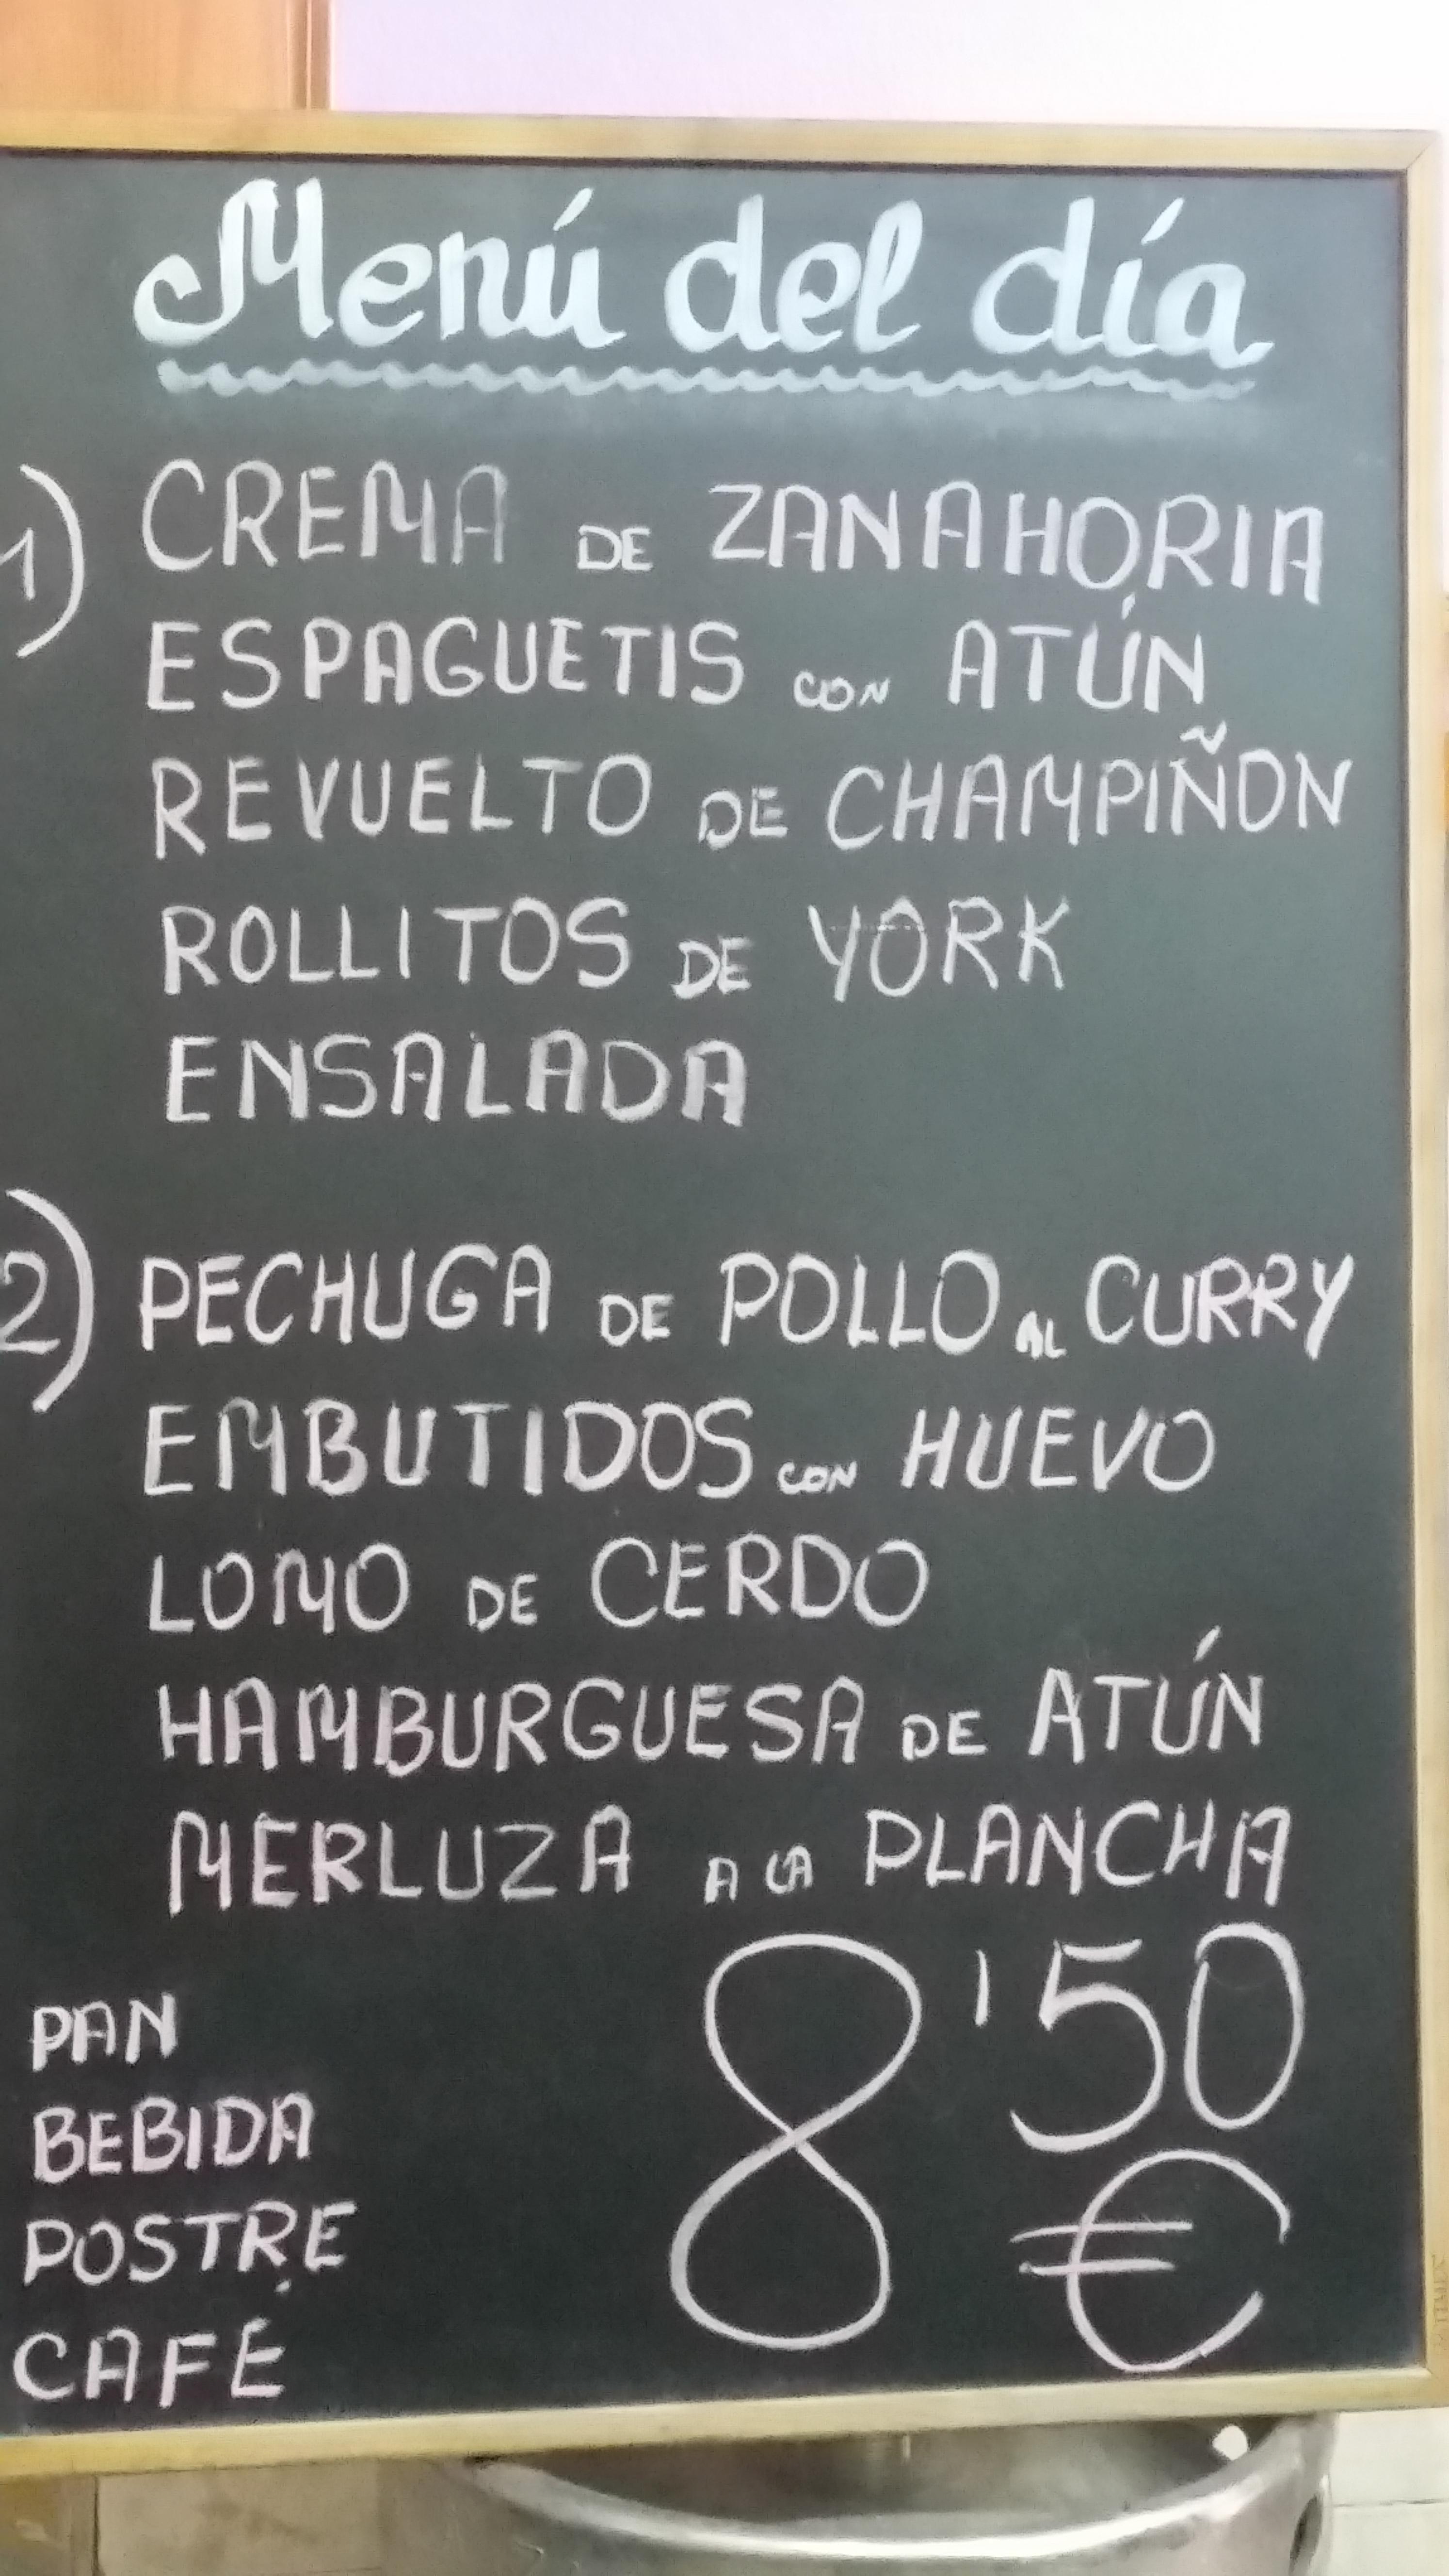 Menú del día
1) CREMA DE ZANAHORIA
ESPAGUETIS CON ATÚN
REVUELTO DE CHAMPIÑON
ROLLITOS DE YORK
ENSALADA
2) PECHUGA DE POLLO AL CURRY
EMBUTIDOS CON HUEVO
LOMO DE CERDO
HAMBURGUESA DE ATÚN
MERLUZA A LA PLANCHA
PAN
BEBIDA
POSTRE
CAFÉ
8'50
€